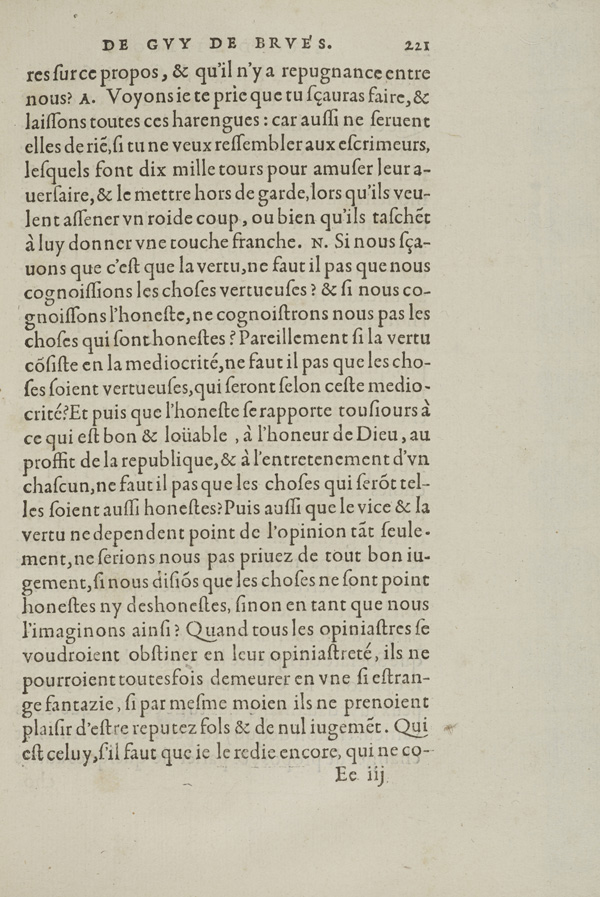 DE GVY DE BRVÉS. 221
res ſur ce propos, & qu'il n'y a repugnance entre
nous? A. Voyons ie te prie que tu ſçauras faire, &
laiſſons toutes ces harengues : car auſſi ne ſeruent
elles de riẽ, ſi tu ne veux reſſembler aux eſcrimeurs,
leſquels font dix mille tours pour amuſer leur a-
uerſaire, & le mettre hors de garde, lors qu'ils veu-
lent aſſener vn roide coup, ou bien qu'ils taſchẽt
à luy donner vne touche franche. N. Si nous ſça-
uons que c'eſt que la vertu, ne faut il pas que nous
cognoiſſions les choſes vertueuſes? & ſi nous co-
gnoiſſons l'honeſte, ne cognoiſtrons nous pas les
choſes qui ſont honeſtes? Pareillement ſi la vertu
cõſiſte en la mediocrité, ne faut il pas que les cho-
ſes ſoient vertueuſes, qui ſeront ſelon ceſte medio-
crité? Et puis que l'honeſte ſe rapporte touſiours à
ce qui eſt bon & loüable, à l'honeur de Dieu, au
proffit de la republique, & à l'entretenement d'vn
chaſcun, ne faut il pas que les choſes qui ſerõt tel-
les ſoient auſſi honeſtes? Puis auſſi que le vice & la
vertu ne dependent point de l'opinion tãt ſeule-
ment, ne ſerions nous pas priuez de tout bon iu-
gement, ſi nous diſiõs que les choſes ne ſont point
honeſtes ny deshoneſtes, ſinon en tant que nous
l'imaginons ainſi? Quand tous les opiniaſtres ſe
voudroient obſtiner en leur opiniaſtreté, ils ne
pourroient toutesfois demeurer en vne ſi eſtran-
ge fantazie, ſi par meſme moien ils ne prenoient
plaiſir d'eſtre reputez fols & de nul iugemẽt. Qui
eſt celuy, s'il faut que ie le redie encore, qui ne co-
Ee iij